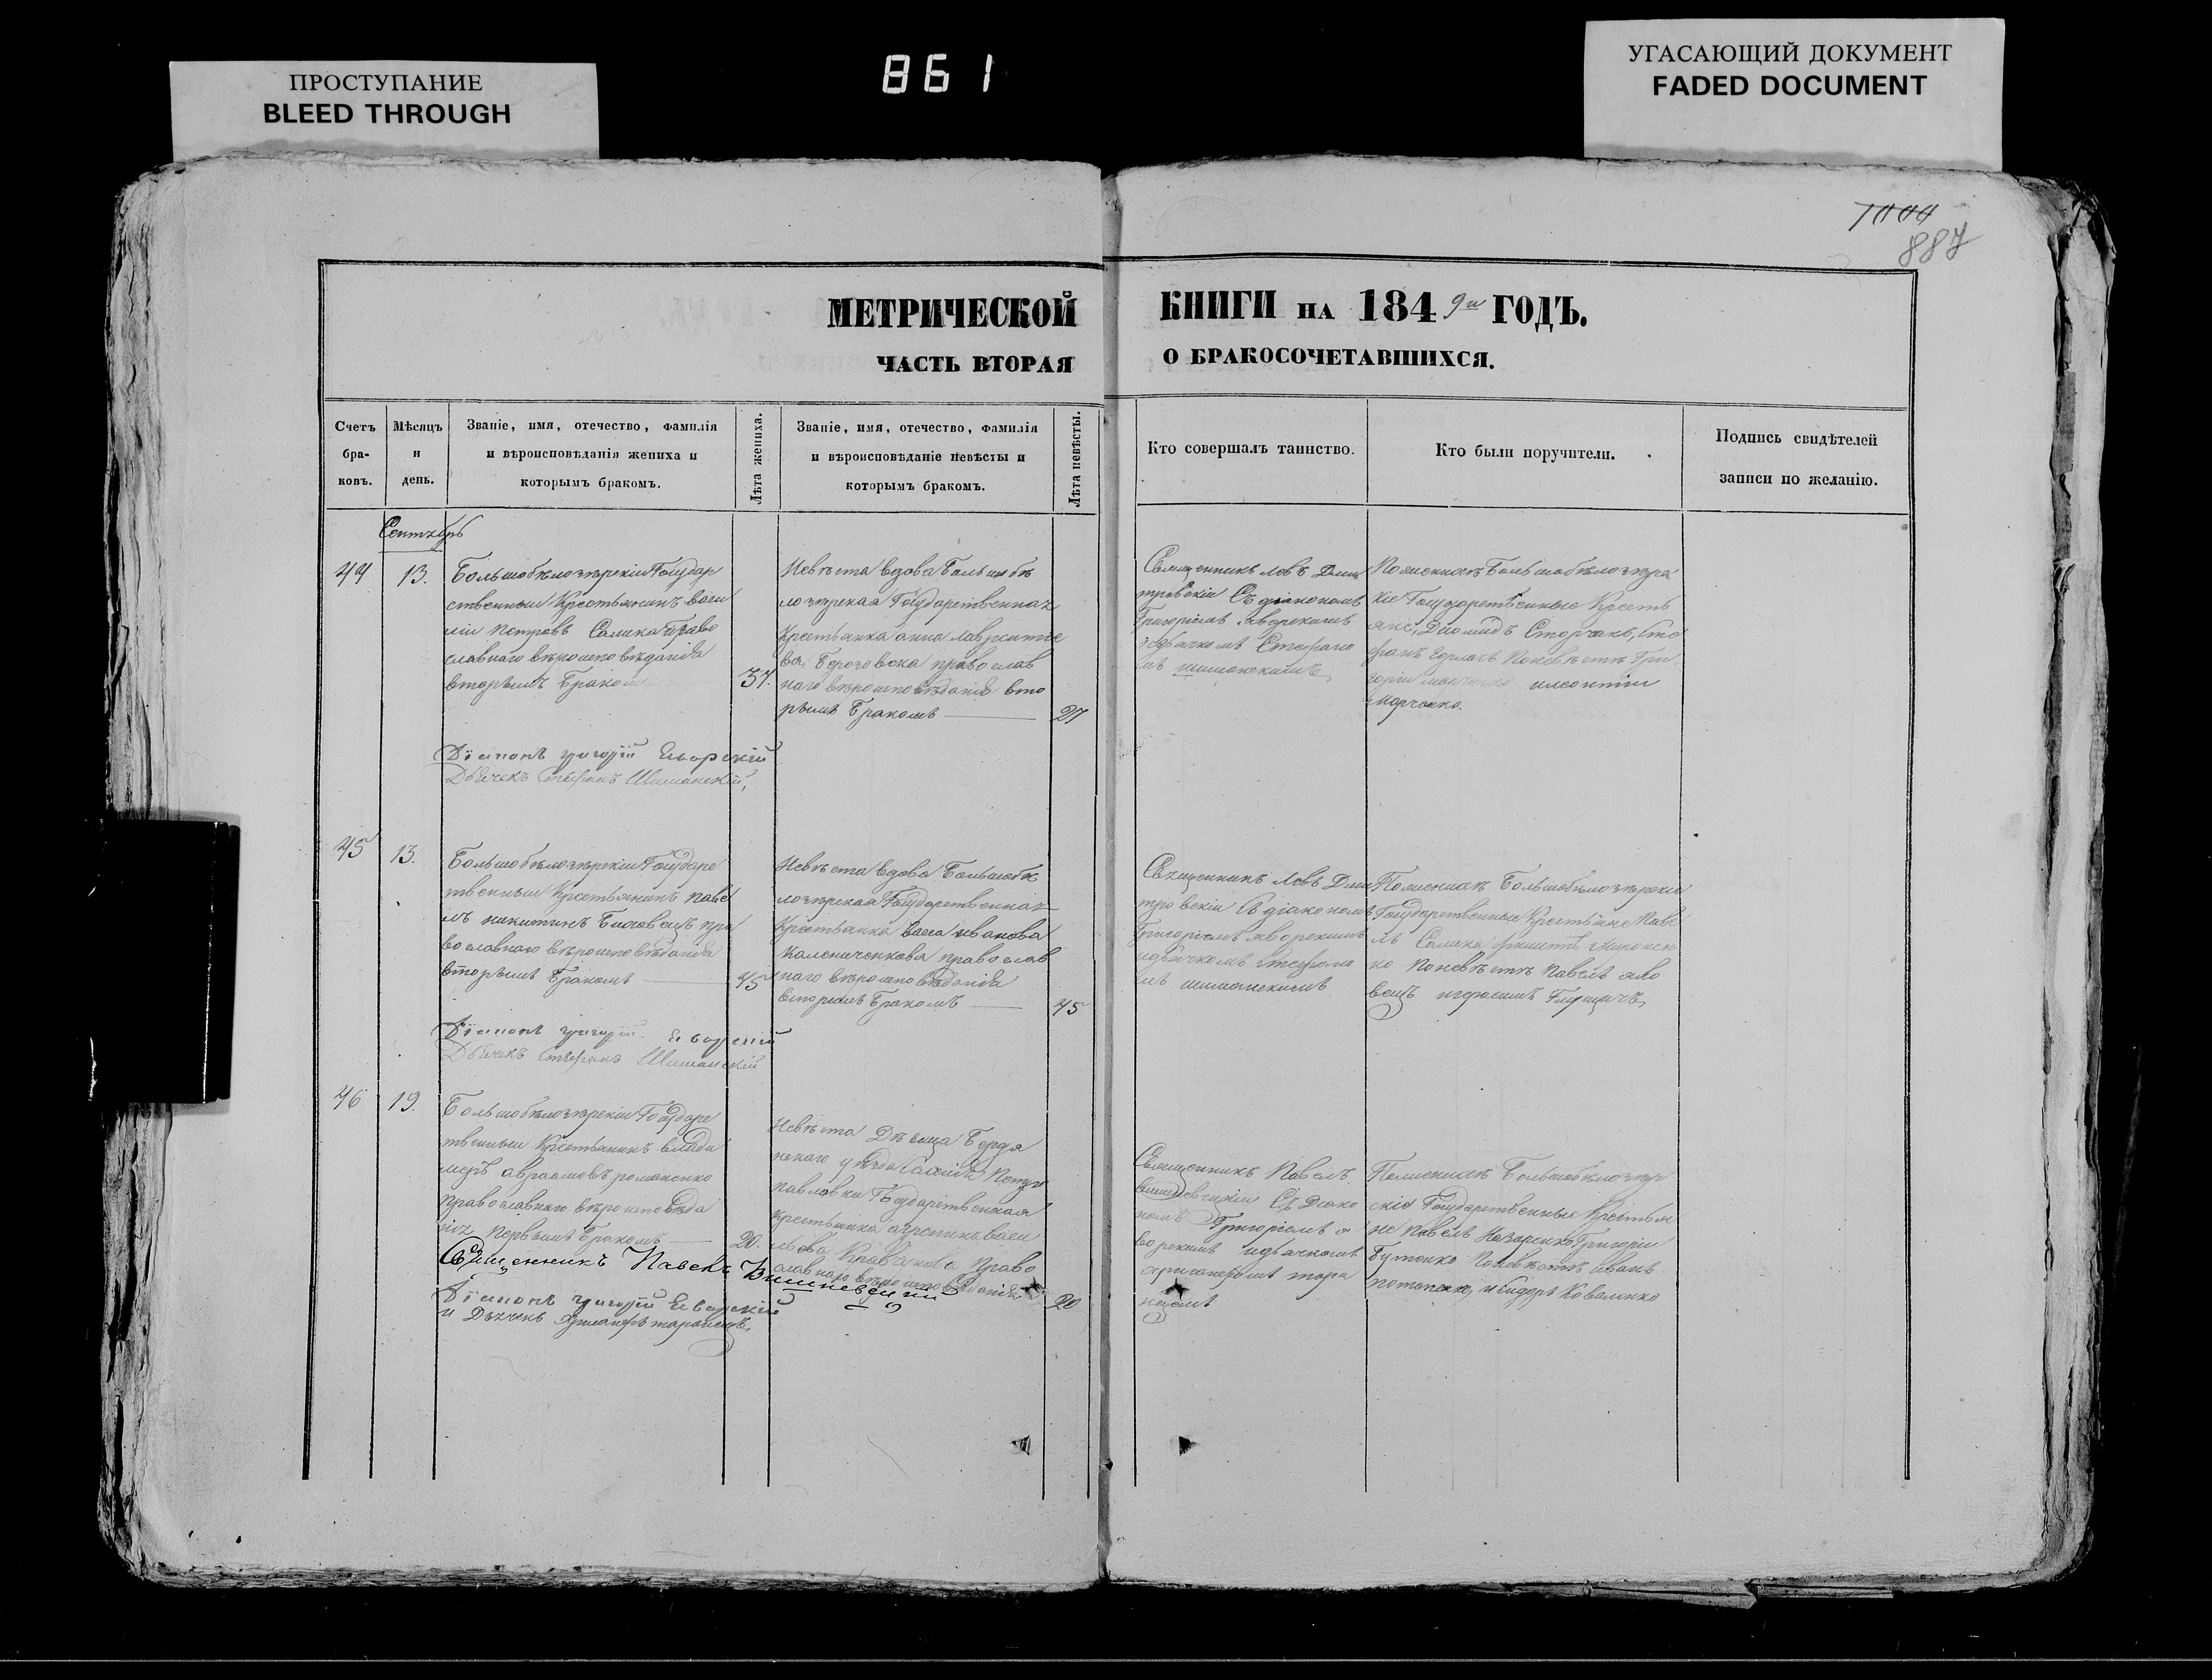 ПРОСТУПАНИЕ
BLEED THROUGH
861
УГАСАЮЩИЙ ДОКУМЕНТ
FADED DOCUMENT
887
МЕТРИЧЕСКОЙ КНИГИ НА 1849й ГОДЪ.
ЧАСТЬ ВТОРАЯ О БРАКОСОЧЕТАВШИХСЯ.
Счетъ
бра-
ковъ.
Мѣсяцъ
и
день.
Званіе, имя, отечество, фамилія
и вѣроисповѣданія жениха и
которымъ бракомъ.
Лѣта жениха.
Званіе, имя, отечество, фамилія
и вѣроисповѣданіе невѣсты и
которымъ бракомъ.
Лѣта невѣсты.
Кто совершалъ таинство.
Кто были поручители.
Подпись свидѣтелей
записи по желанію.
Сентябрь
44
13.
Большобѣлозѣрскіи Государ
ственныи Крестьянинъ васи
ліи Петровъ Саликъ Право
славнаго вѣроисповѣданія
вторымъ Бракомъ
37.
Невѣста вдова Большобѣ
лозѣрская Государственная
Крестьянка анна Лаврентіе
ва православ
наго вѣроисповѣданія вто
рымъ Бракомъ
27
Священникъ Левъ Дми
тровскіи Съ діакономъ
Григоріемъ яворскимъ
идьячкомъ Стефано
мъ шиманскимъ
По женихѣ Большобѣлозѣрс
кіе Государственные Кресть
яне, Диомидъ Сторчакъ, Сте
фанъ По невѣстѣ Гри
горіи илеонтіи
Марченко.
Діаконъ григорій Еворскій
Дьячекъ Стефанъ Шиманскій,
45
13.
Большобѣлозѣрскіи Государс
твенныи Крестьянинъ Паве
лъ никитинъ пра
вославнаго вѣроисповѣданія
вторымъ Бракомъ
45
Невѣста вдова Большобѣ
лозѣрская Государственная
Крестьянка васса иванова
Калениченкова православ
наго вѣроисповѣданія
вторымъ Бракомъ
45
Священникъ Левъ Дми
тровскіи Съ діакономъ
Григоріемъ яворскимъ
идьячкомъ Стефано
мъ шиманскимъ
По женихѣ Большобѣлозѣрскіе
Государственные Крестьяне Паве
лъ
По невѣстѣ Павелъ
вецъ игерасимъ
Діаконъ григорій Еворскій
Дьячекъ Стефанъ Шиманскій
46
19.
Большобѣлозѣрскіи Государс
твенныи Крестьянинъ влади
меръ авраамовъ романенко
православнаго вѣроисповѣда
нія Первымъ Бракомъ
20.
Невѣста Дѣвица Бердя
нскаго уѣзда Селенія Петро
павловки Государственная
Крестьянка агрепина васи
льева Кравцкова Право
славнаго вѣроисповѣданія
20
Священникъ Павелъ
вишневецкіи Съ Діако
номъ Григоріемъ я
ворскимъ идьячкомъ
ариланфомъ тара
нцемъ
По женихѣ Большобѣлозѣр
скіе Государственные Крестья
не Павелъ Назаренко Григоріи
Бутенко По невѣстѣ иванъ
потапенко, иСидоръ Коваленко
Священникъ Павелъ Вишневецкій
Діаконъ григорій Еворскій
и Дьячекъ таранецъ,